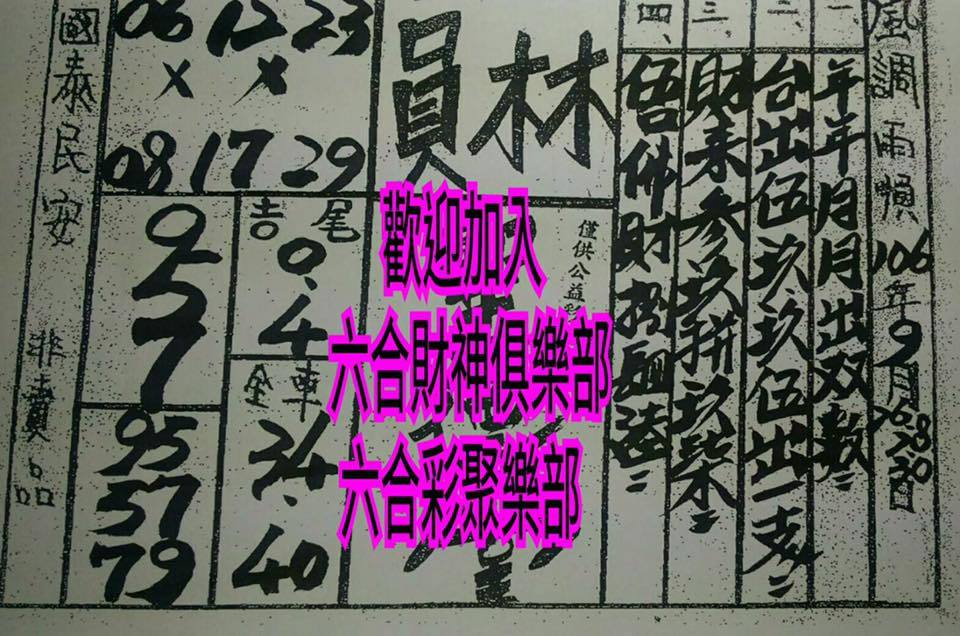 風調雨順
106年9月26.28.30日
一、
年年月月出双数
二、
台出伍玖.玖伍出一支
三、
財来参玖拼玖柒
四、
員林
僅供公益
歡迎加入
六合財神俱樂部
六合彩聚樂部
12 23
× ×
08 17 29
吉尾
0.4
全車
34.40
9
5
7
95
57
79
國泰民安
非賣品